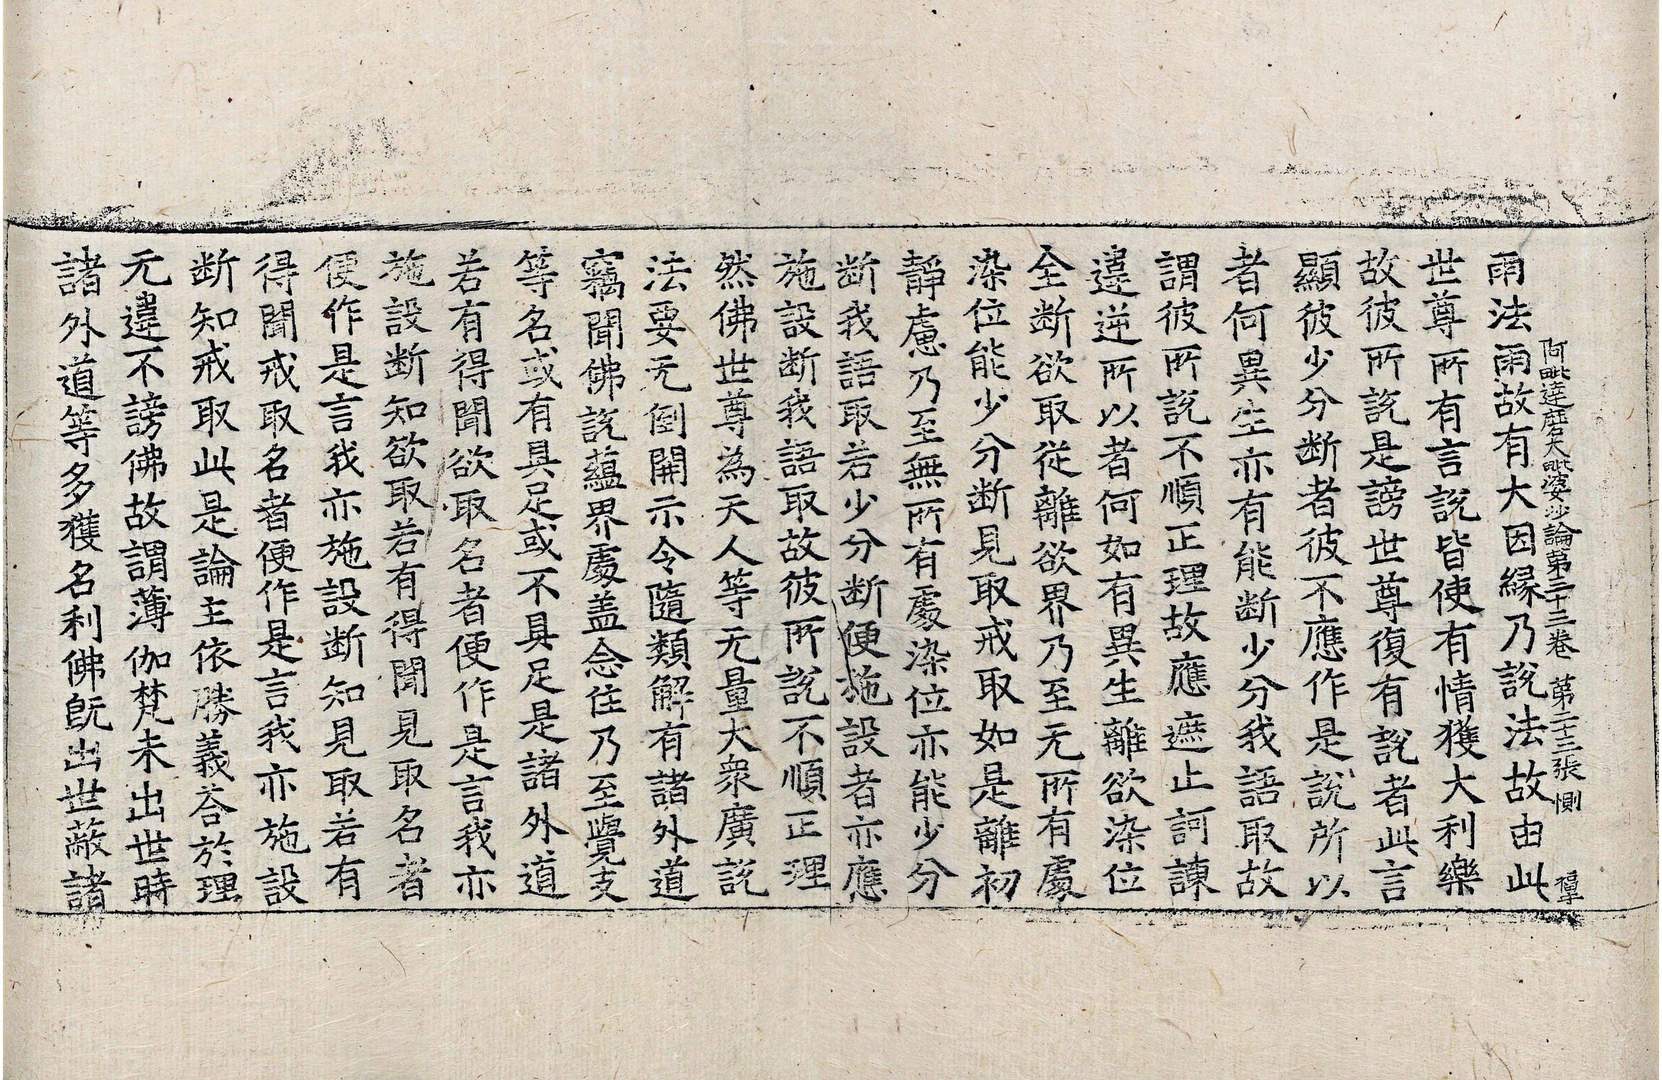 阿毗達磨大毗婆沙論第三十三卷 第二十三張 惻
雨法雨故有大因緣乃說法故由此
世尊所有言說皆使有情獲大利樂
故彼所說是謗世尊復有說者此言
顯彼少分断者彼不應作是說所以
者何異生亦有能断少分我語取故
謂彼所說不順正理故應遮止訶諫
違逆所以者何如有異生離欲染位
全断欲取從離欲界乃至无所有處
染位能少分断見取戒取如是離初
靜慮乃至無所有處染位亦能少分
断我語取若少分断便施設者亦應
施設断我語取故彼所說不順正理
然佛世尊為天人等无量大衆廣說
法要无倒開示令隨類解有諸外道
竊聞佛說蘊界處盖念住乃至覺支
等名或有具足或不具足是諸外道
若有得聞欲取名者便作是言我亦
施設断知欲取若有得聞見取名者
便作是言我亦施設断知見取若有
得聞戒取名者便作是言我亦施設
断知戒取此是論主依勝義荅於理
无違不謗佛故謂薄伽梵未出世時
諸外道等多獲名利佛旣出世蔽諸